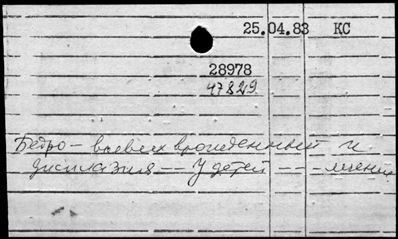 25.04.83 КС
28978
47829
Бедро — вывих врожденный и
дисплазия — — У детей — — — лечение